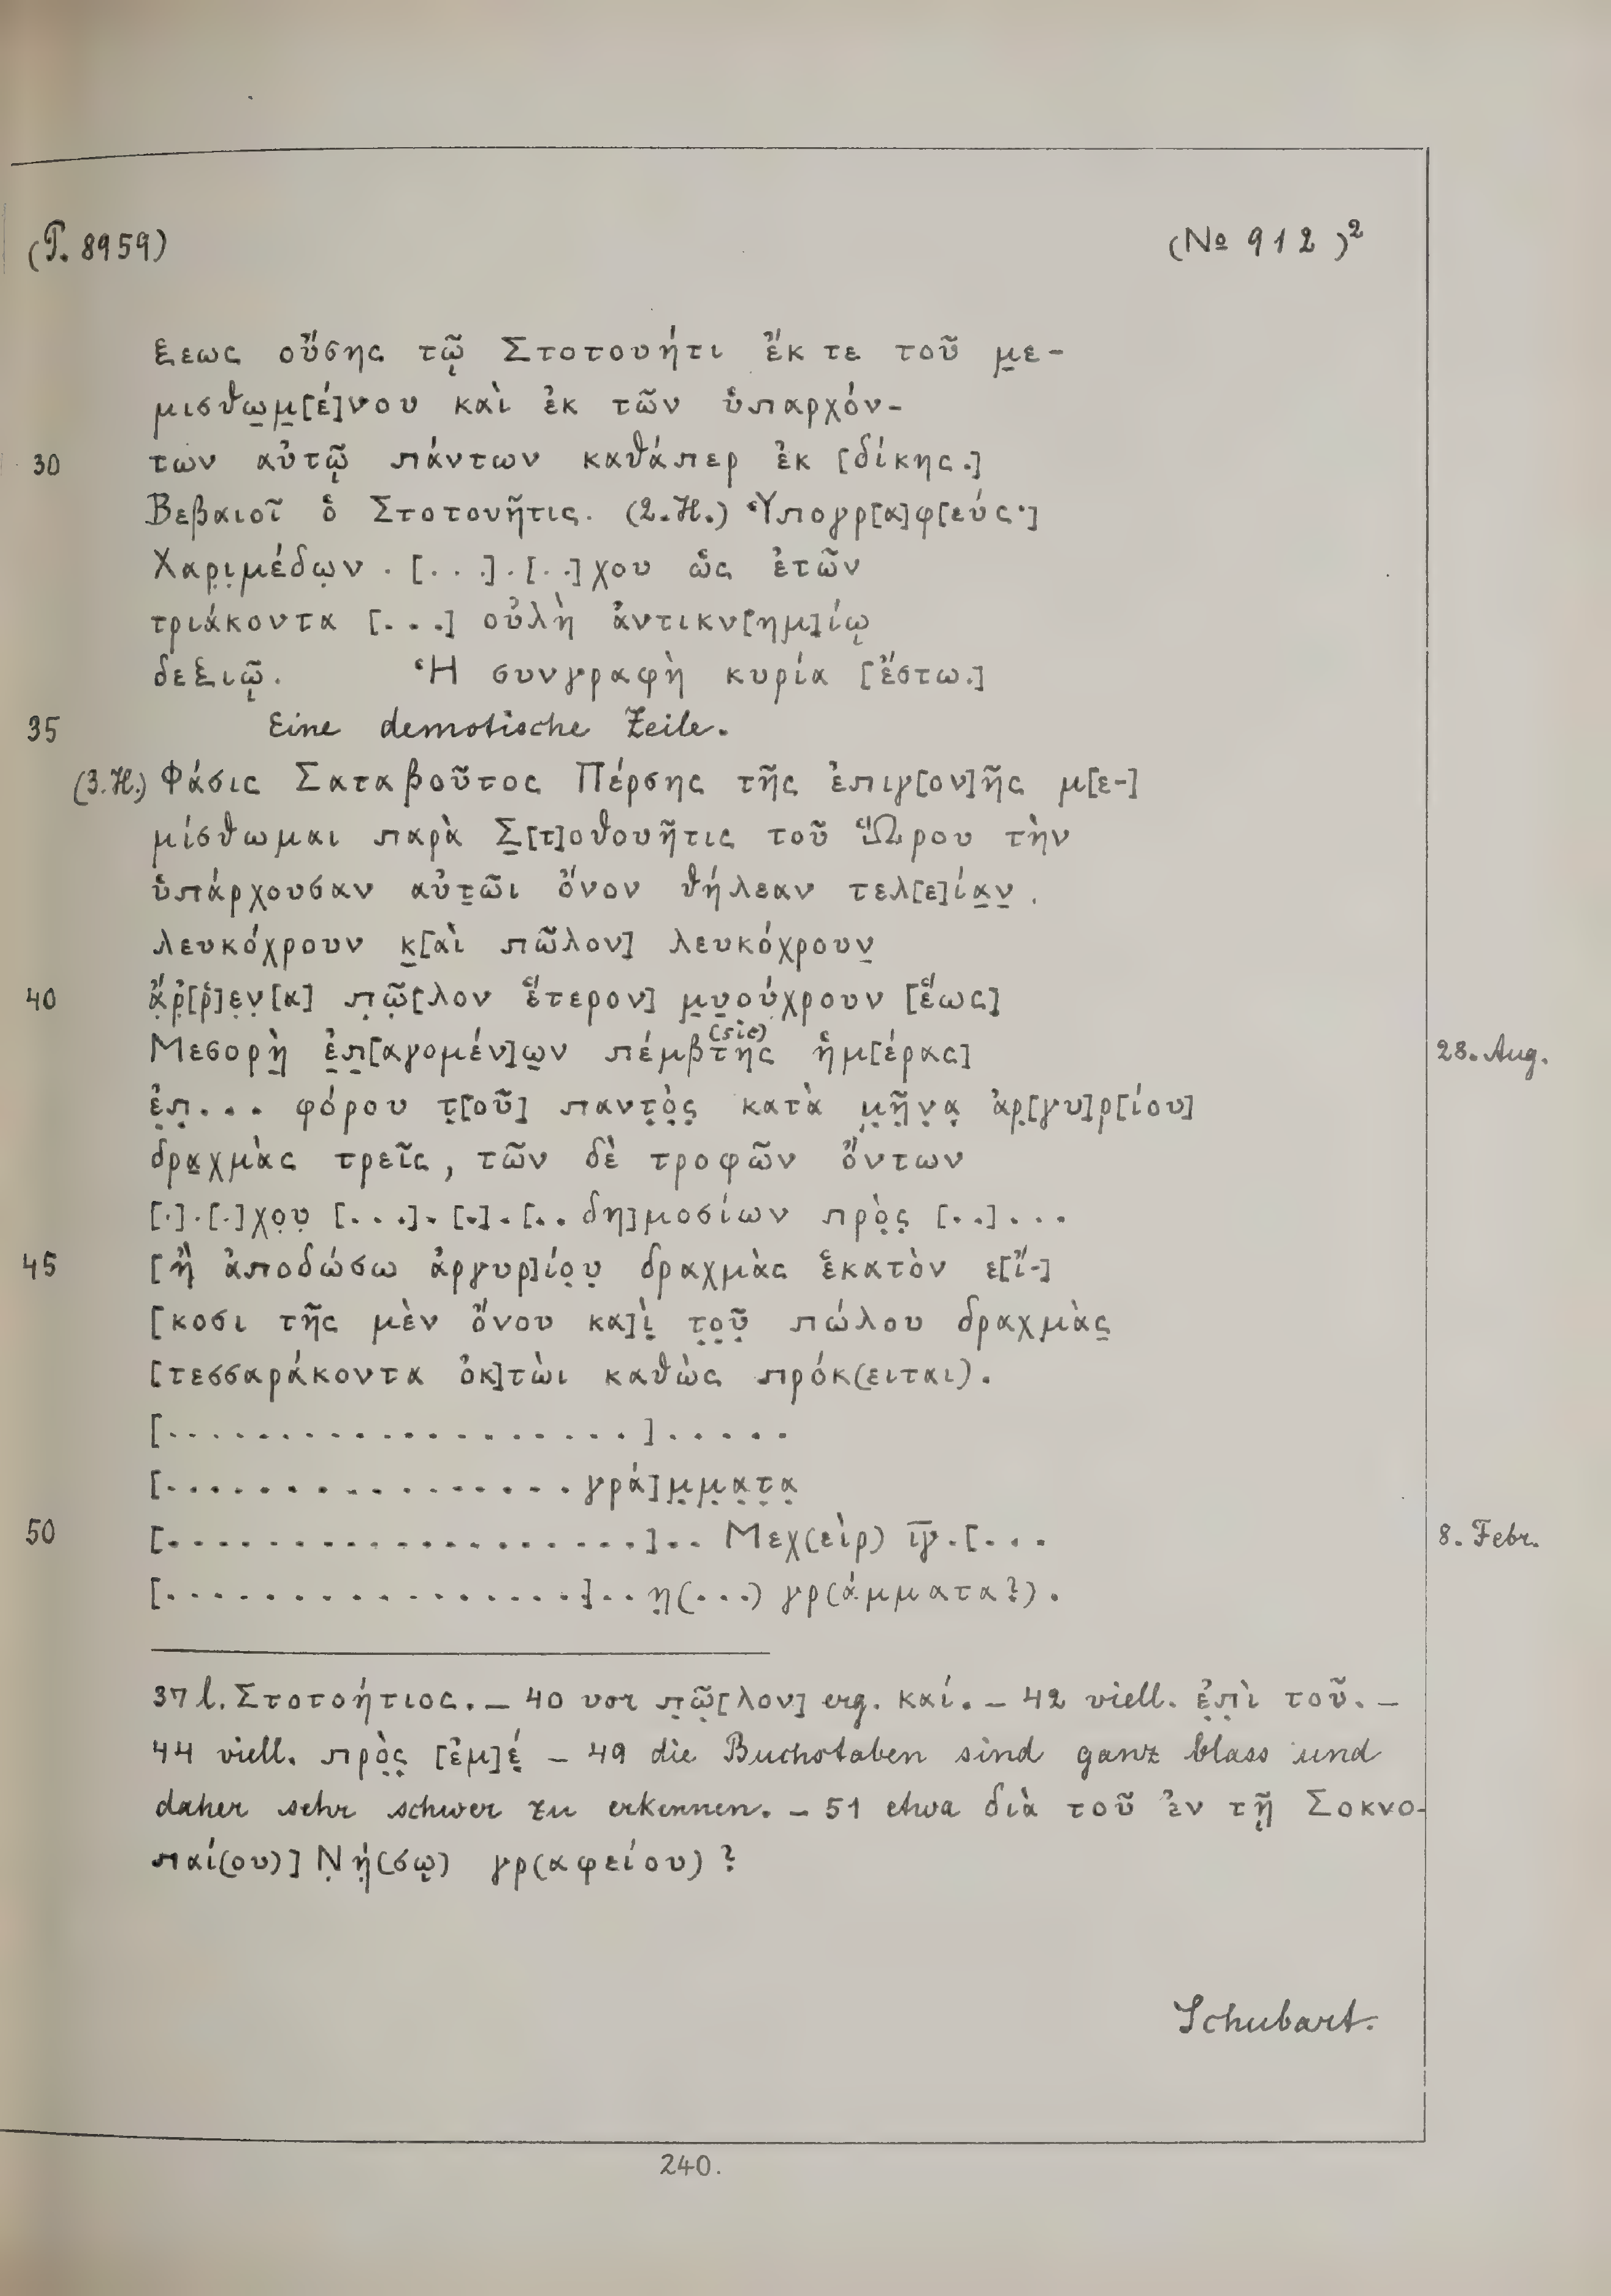 (P. 8959) (№ 912)²
ξεως οὔσης τῷ Στοτουήτι ἔκ τε τοῦ μ̣ε-
μισθω̣μ̣[έ]νου καὶ ἐκ τῶν ὑπαρχόν-
30 των αὐτῷ πάντων καθάπερ ἐκ [δίκης.]
Βεβαιοῖ ὁ Στοτουῆτις. (2.H.) Ὑπογρ[α]φ[εύς·]
Χαρ̣ι̣μέδω̣ν . [. . .] . [. .]χου ὡς ἐτῶν
τριάκοντα [. . .] οὐλὴ ἀντικν[ημ]ίῳ
δεξιῷ. Ἡ συνγραφὴ κυρία [ἔστω.]
35 Eine demotische Zeile.
(3.H.) Φάσις Σαταβοῦτος Πέρσης τῆς ἐπιγ[ον]ῆς μ[ε-]
μίσθωμαι παρὰ Σ̣[τ]οθουῆτις τοῦ Ὥρου τὴν
ὑπάρχουσαν αὐτ̣ῶι ὄνον θήλεαν τελ[ε]ία̣ν̣ .
λευκόχρουν κ̣[αὶ πῶλον] λευκόχρουν̣
40 ἄ̣ρ̣[ῥ]ε̣ν̣[α] π̣ῶ̣[λον ἕτερον] μ̣υ̣ούχρουν [ἕως]
Μεσορὴ̣ ἐ̣π̣[αγομέν]ω̣ν πέμβτης (sic) ἡμ[έρας] 28. Aug.
ἐ̣π̣. . . φόρου τ̣[οῦ] παντ̣ὸ̣ς̣ κατὰ μ̣ῆ̣ν̣α̣ ἀρ̣[γυ]ρ[ίου]
δρα̣χμὰς τρεῖς, τῶν δὲ τροφῶν ὄντων
[.] . [.]χο̣υ̣ [. . .] . [.] . [. . δη]μοσίων πρὸ̣ς̣ [. .] . . .
45 [ἢ ἀποδώσω ἀργυρ]ίο̣υ̣ δραχμὰς ἑκατὸν ε[ἴ-]
[κοσι τῆς μὲν ὄνου κα]ὶ̣ τ̣ο̣ῦ̣ πώλου δραχμὰς̣
[τεσσαράκοντα ὀκ]τὼι καθὼς πρόκ(ειται).
[. . . . . . . . . . . . . . . . . . . .] . . . . .
[. . . . . . . . . . . . . . . . . γρά]μ̣μ̣α̣τ̣α̣
50 [. . . . . . . . . . . . . . . . . . . .] . . Μεχ(εὶρ) ι̅γ̅ . [. . . 8. Febr.
[. . . . . . . . . . . . . . . . . .] . . η̣(. . .) γρ(άμματα?).
37 l. Στοτοήτιος. – 40 vor π̣ῶ̣[λον] erg. καί. – 42 viell. ἐ̣π̣ὶ τοῦ. –
44 viell. πρὸ̣ς̣ [ἐμ]έ̣ – 49 die Buchstaben sind ganz blass und
daher sehr schwer zu erkennen. – 51 etwa διὰ τοῦ ἐν τῇ Σοκνο-
παί(ου)] Ν̣ή̣(σῳ) γρ(αφείου)?
Schubart.
240.